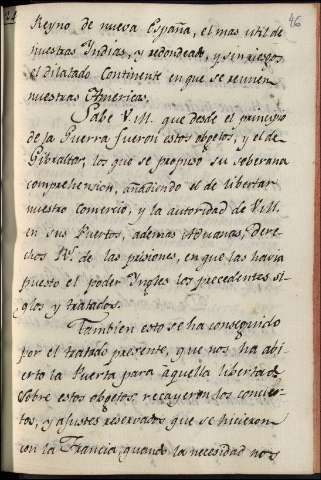 46
Reyno de nueva España, el mas util de
nuestras Yndias, y redondeado, y sin riesgos
el dilatado Continente en que se reunen
nuestras Americas.
Sabe V.M. que desde el principio
de la Guerra fueron estos objetos, y el de
Gibraltar, los que se propuso su soberana
comprehension, añadiendo el de libertar
nuestro Comercio, y la autoridad de V.M.
en sus Puertos, ademas Aduanas, y dere-
chos Rs. de las prisiones, en que las havia
puesto el poder Yngles los precedentes si-
glos y tratados.
Tambien esto se ha conseguido
por el tratado presente, que nos ha abi-
erto la Puerta para aquella libertad.
Sobre estos objetos, recayeron los concier-
tos, y ajustes reservados que se hicieron
con la Francia, quando la necesidad nos